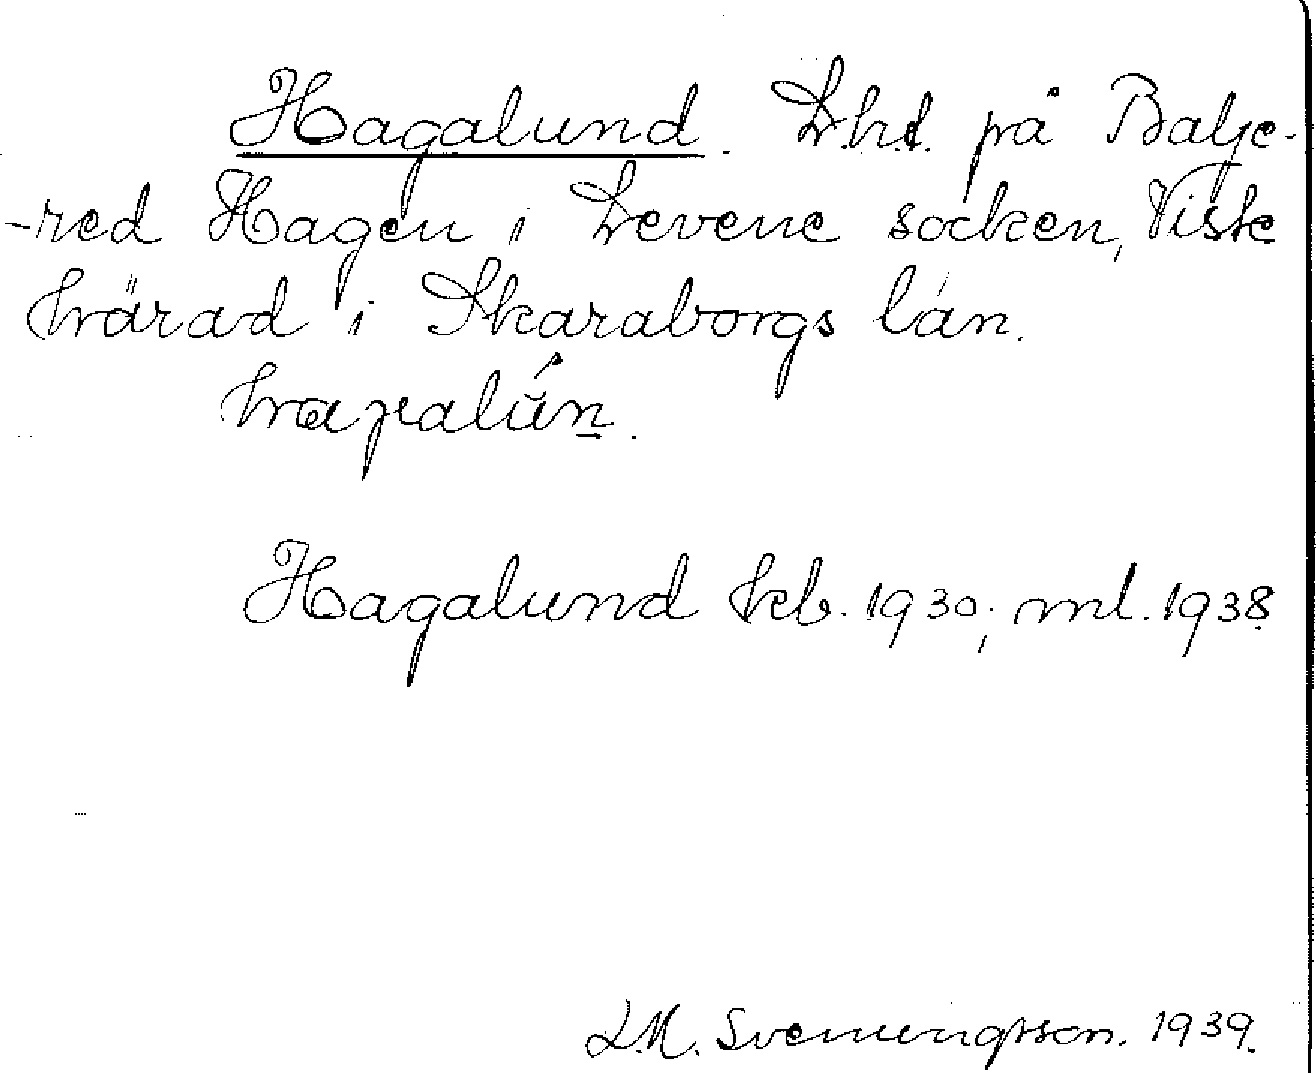 Hagalund. Lht. på Balje-
-red Hagen i Levene socken, Viste
härad i Skaraborgs län.
Hagalund kcb. 1930; ml. 1938
L.M. Svenungsson. 1939.